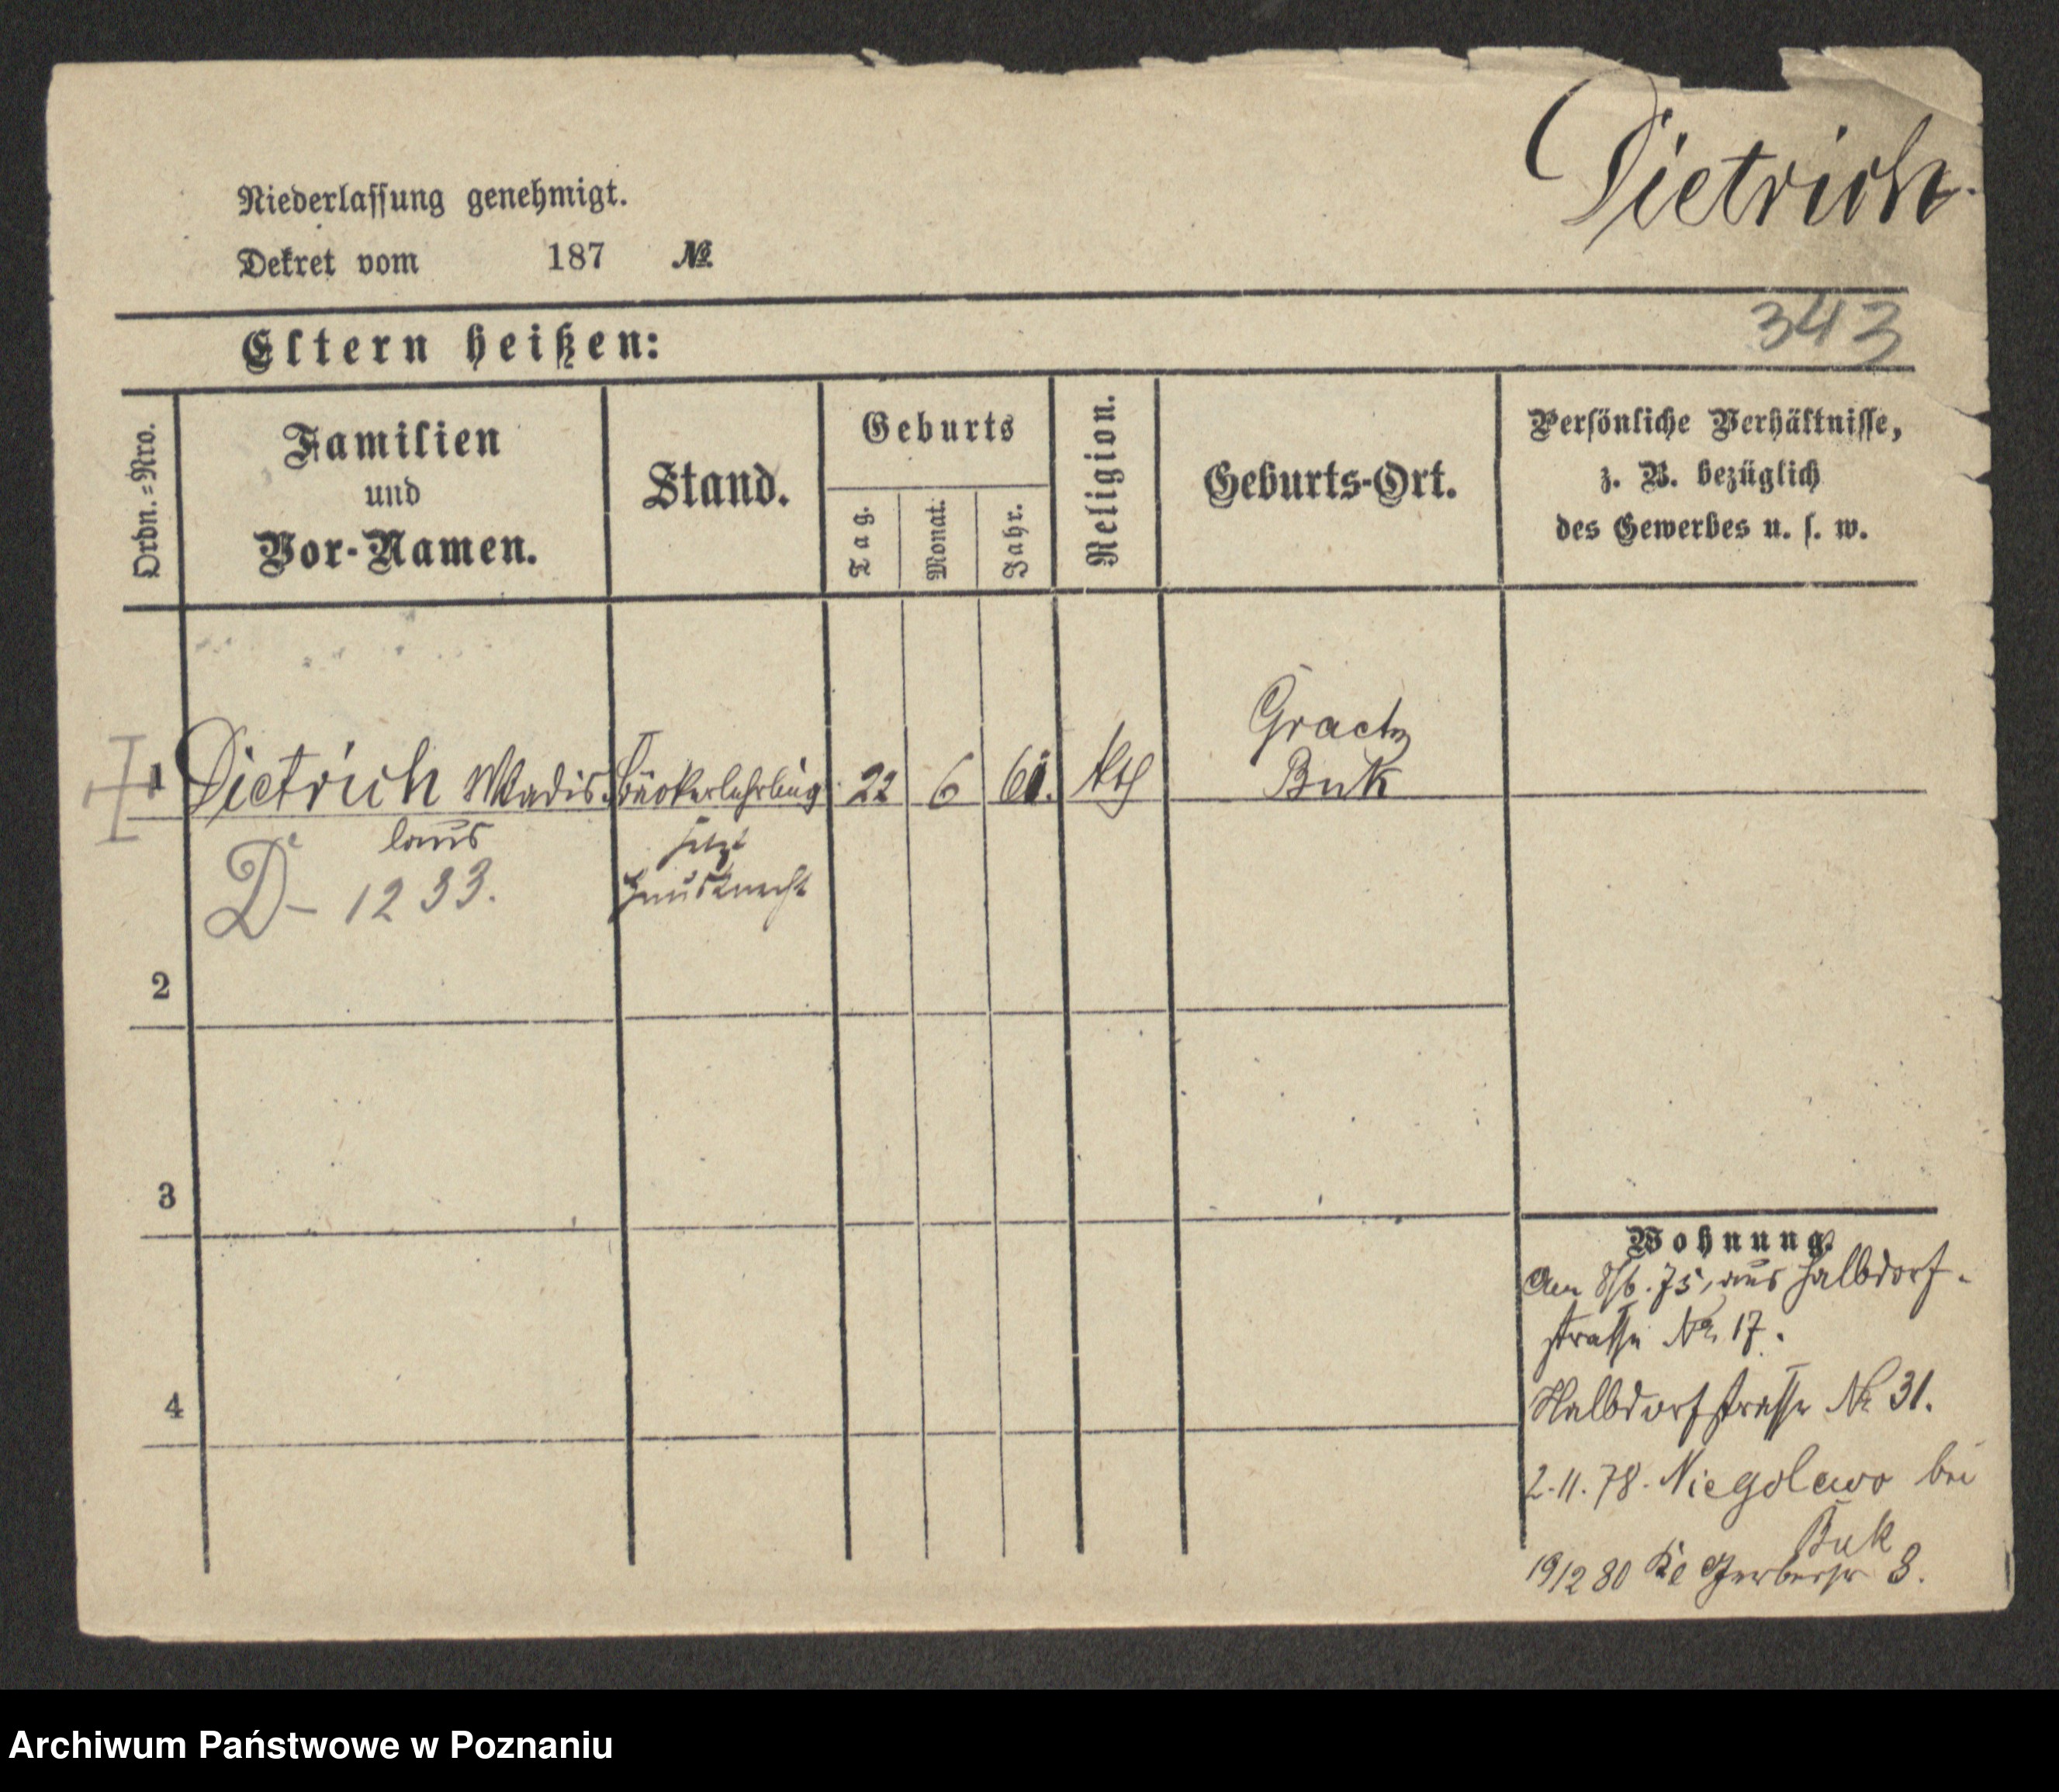 Dietrich.
Niederlassung genehmigt.
Dekret vom 187 №
343
Eltern heißen:
Ordn.=Nro.
Familien
und
Vor-Namen.
Stand.
Geburts
Tag.
Monat.
Jahr.
Religion.
Geburts-Ort.
Persönliche Verhältnisse,
z. B. bezüglich
des Gewerbes u. s. w.
1 Dietrich Wladis- Bäckerlehrling 22 6 61. kth Graetz
Buk
laus jetzt
D- 1233. Hausknecht
2
3
4
Wohnung.
Am 8/6.75, aus Halbdorf-
strasse No. 17.
Halbdorfstrasse No 31.
2.11.78. Niegolewo bei
Buk
19/12 80 Kl Gerberstr 3.
Archiwum Państwowe w Poznaniu